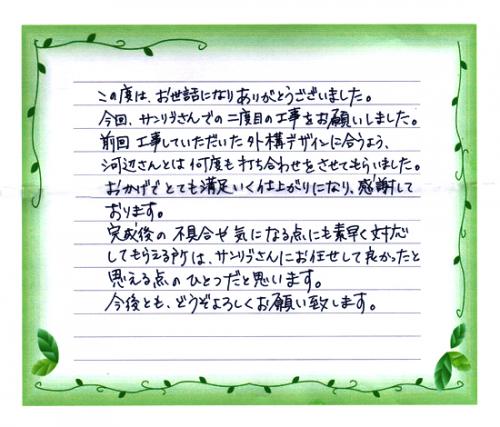 この度は、お世話になりありがとうございました。
今回、サンリブさんでの二度目の工事をお願いしました。
前回工事していただいた外構デザインに合うよう、
河辺さんとは何度も打ち合わせをさせてもらいました。
おかげでとても満足いく仕上がりになり、感謝して
おります。
完成後の不具合や気になる点にも素早く対応
してもらえる所は、サンリブさんにお任せして良かったと
思える点のひとつだと思います。
今後とも、どうぞよろしくお願い致します。